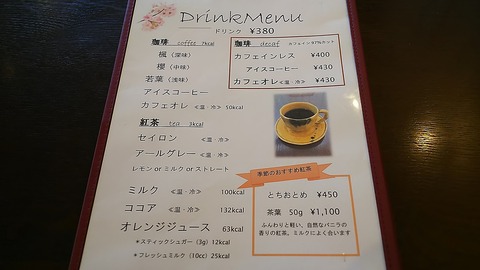 Drink Menu
ドリンク ¥380
珈琲 coffee 7kcal
楓（深味）
櫻（中味）
若葉（浅味）
アイスコーヒー
カフェオレ ≪温・冷≫ 50kcal
紅茶 tea 3kcal
セイロン ≪温・冷≫
アールグレー ≪温・冷≫
レモン or ミルク or ストレート
ミルク ≪温・冷≫ 100kcal
ココア ≪温・冷≫ 132kcal
オレンジジュース 63kcal
＊スティックシュガー（3g）12kcal
＊フレッシュミルク（10cc）25kcal
珈琲 decaf カフェイン97%カット
カフェインレス ¥400
アイスコーヒー ¥430
カフェオレ ≪温・冷≫ ¥430
季節のおすすめ紅茶
とちおとめ ¥450
茶葉 50g ¥1,100
ふんわりと軽い、自然なバニラの
香りの紅茶。ミルクによく合います